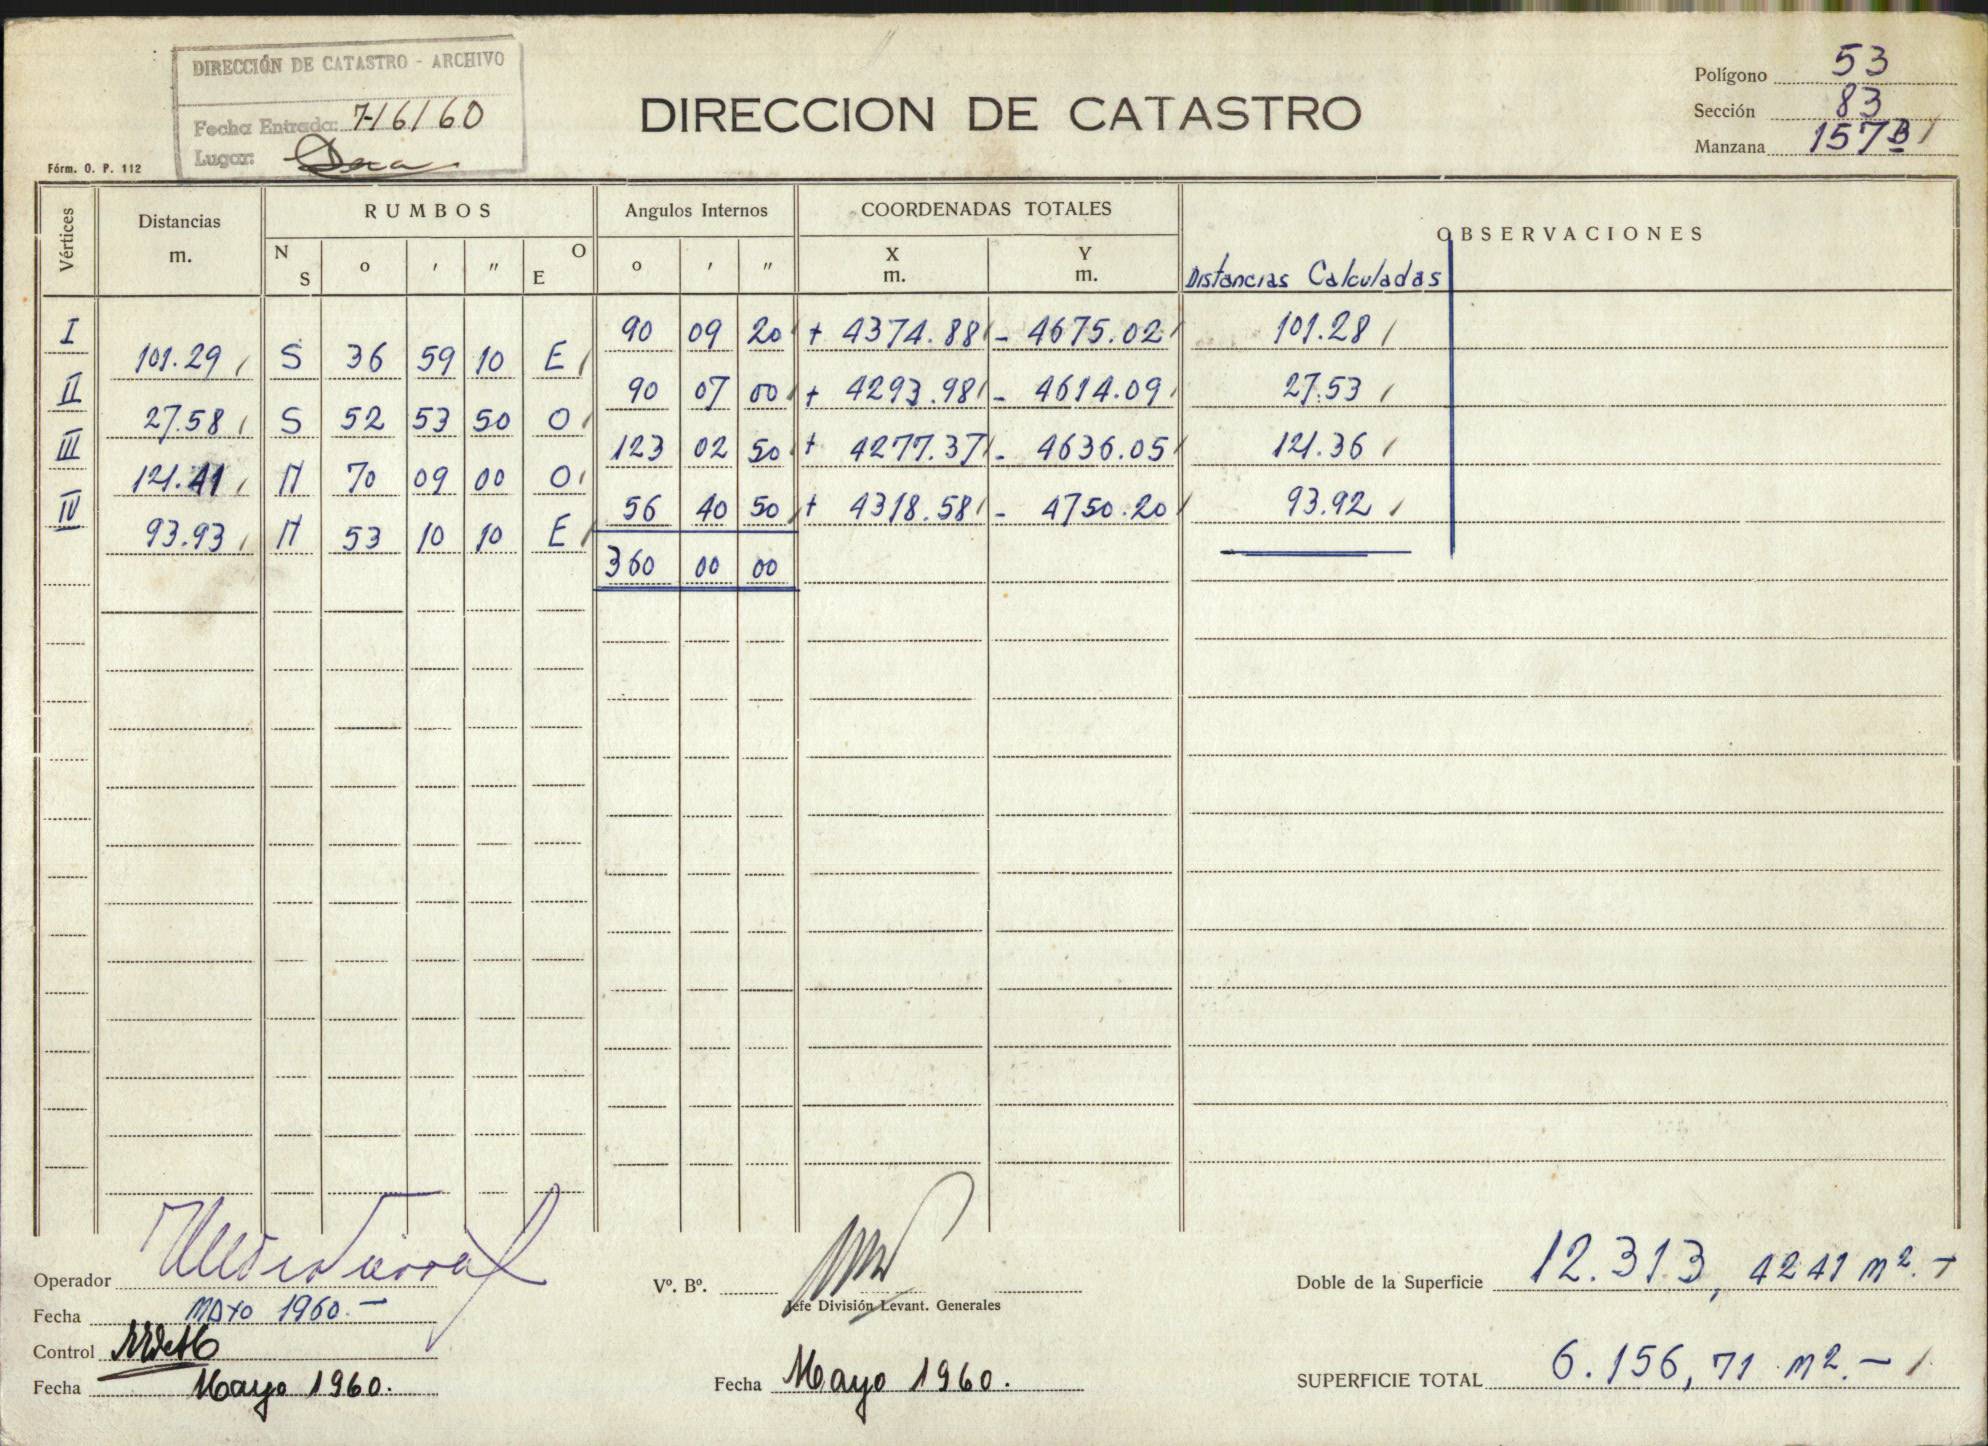 DIRECCIÓN DE CATASTRO - ARCHIVO
Fecha Entrada: 7/6/60
Lugar:
DIRECCION DE CATASTRO
Polígono 53
Sección 83
Manzana 157 B
Fórm. O. P. 112
Vértices Distancias m. RUMBOS Angulos Internos COORDENADAS TOTALES OBSERVACIONES
N S o ′ ″ O E o ′ ″ X m. Y m. Distancias Calculadas
I 90 09 20 + 4374.88 - 4675.02 101.28
101.29 S 36 59 10 E
II 90 07 00 + 4293.98 - 4614.09 27.53
27.58 S 52 53 50 O
III 123 02 50 + 4277.37 - 4636.05 121.36
121.41 N 70 09 00 O
IV 56 40 50 + 4318.58 - 4750.20 93.92
93.93 N 53 10 10 E
360 00 00
Operador
Fecha MAYO 1960.-
Control
Fecha Mayo 1960.
Vº. Bº.
Jefe División Levant. Generales
Fecha Mayo 1960.
Doble de la Superficie 12.313, 4241 m2.-
SUPERFICIE TOTAL 6.156,71 m2.-